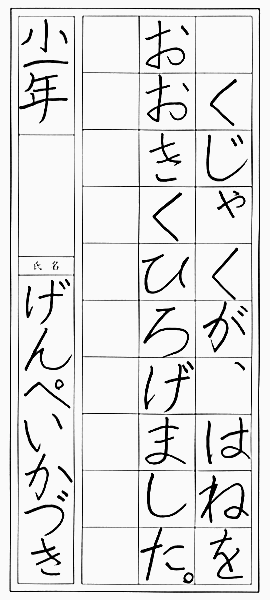 くじゃくが、はねを
おおきくひろげました。
小一年
氏名
げんぺいかづき